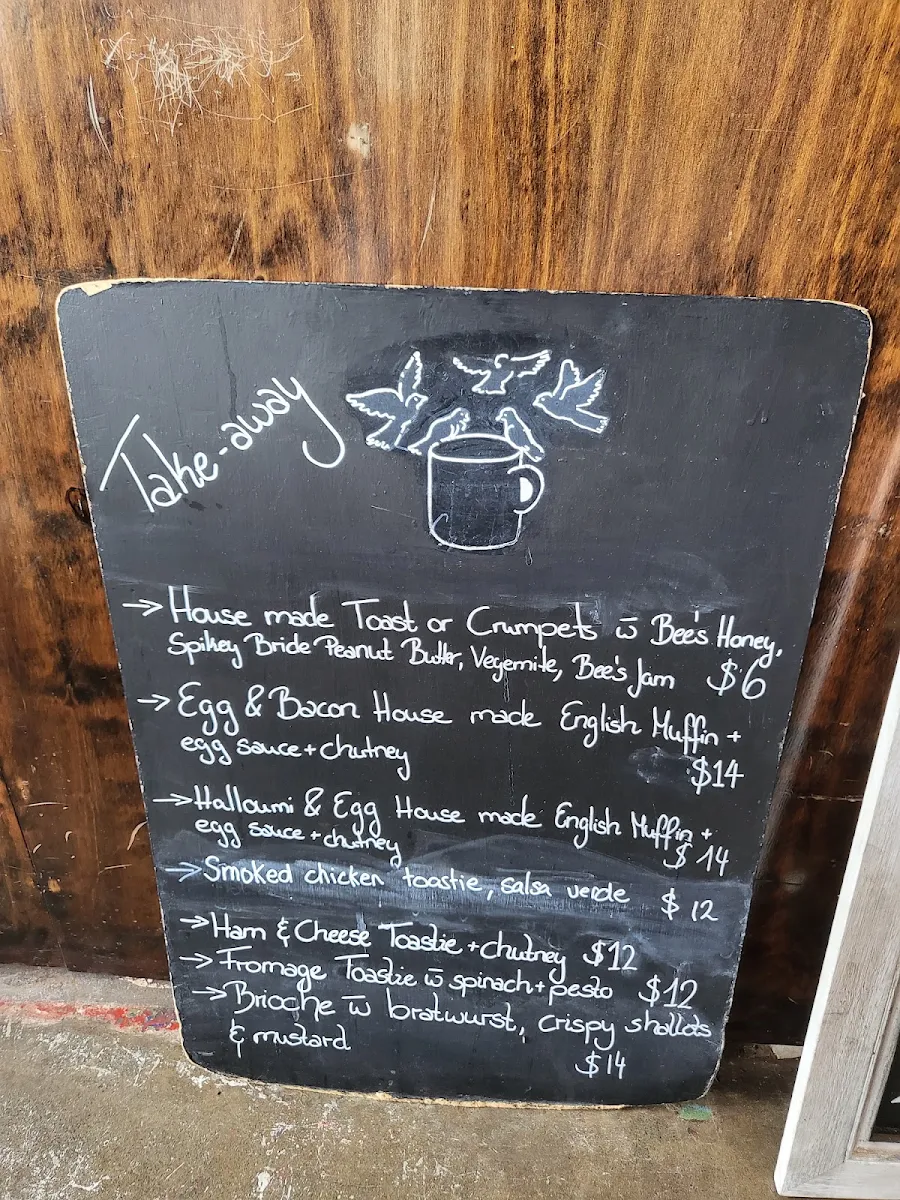 Take-away
→ House made Toast or Crumpets w̄ Bee's Honey,
Spikey Bride Peanut Butter, Vegemite, Bee's Jam $6
→ Egg & Bacon House made English Muffin +
egg sauce + chutney $14
→ Halloumi & Egg House made English Muffin +
egg sauce + chutney $14
→ Smoked chicken toastie, salsa verde $12
→ Ham & Cheese Toastie + chutney $12
→ Fromage Toastie w̄ spinach + pesto $12
→ Brioche w̄ bratwurst, crispy shallots
& mustard $14